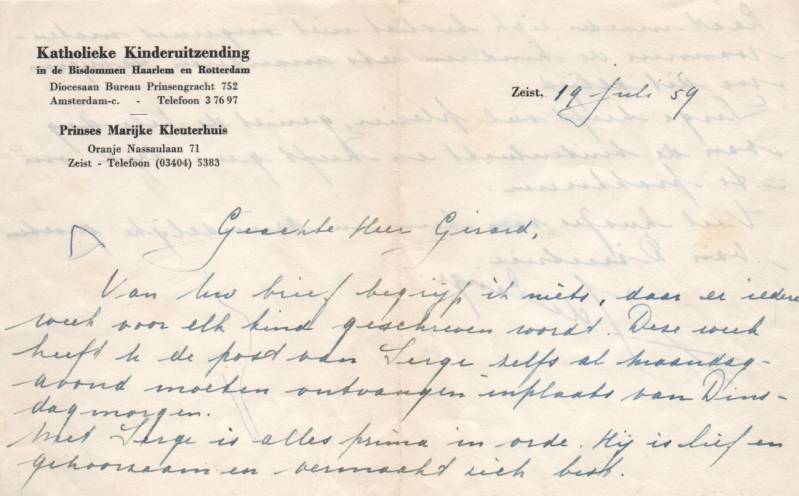 Katholieke Kinderuitzending
in de Bisdommen Haarlem en Rotterdam
Diocesaan Bureau Prinsengracht 752
Amsterdam-c. - Telefoon 3 76 97
Prinses Marijke Kleuterhuis
Oranje Nassaulaan 71
Zeist - Telefoon (03404) 5383
Zeist, 19 Juli '59
Geachte Heer Girard,
Van Uw brief begrijp ik niets, daar er iedere
week voor elk kind geschreven wordt. Deze week
heeft U de post van Serge zelfs al Maandag-
avond moeten ontvangen inplaats van Dins-
dagmorgen.
Met Serge is alles prima in orde. Hij is lief en
gehoorzaam en vermaakt zich best.